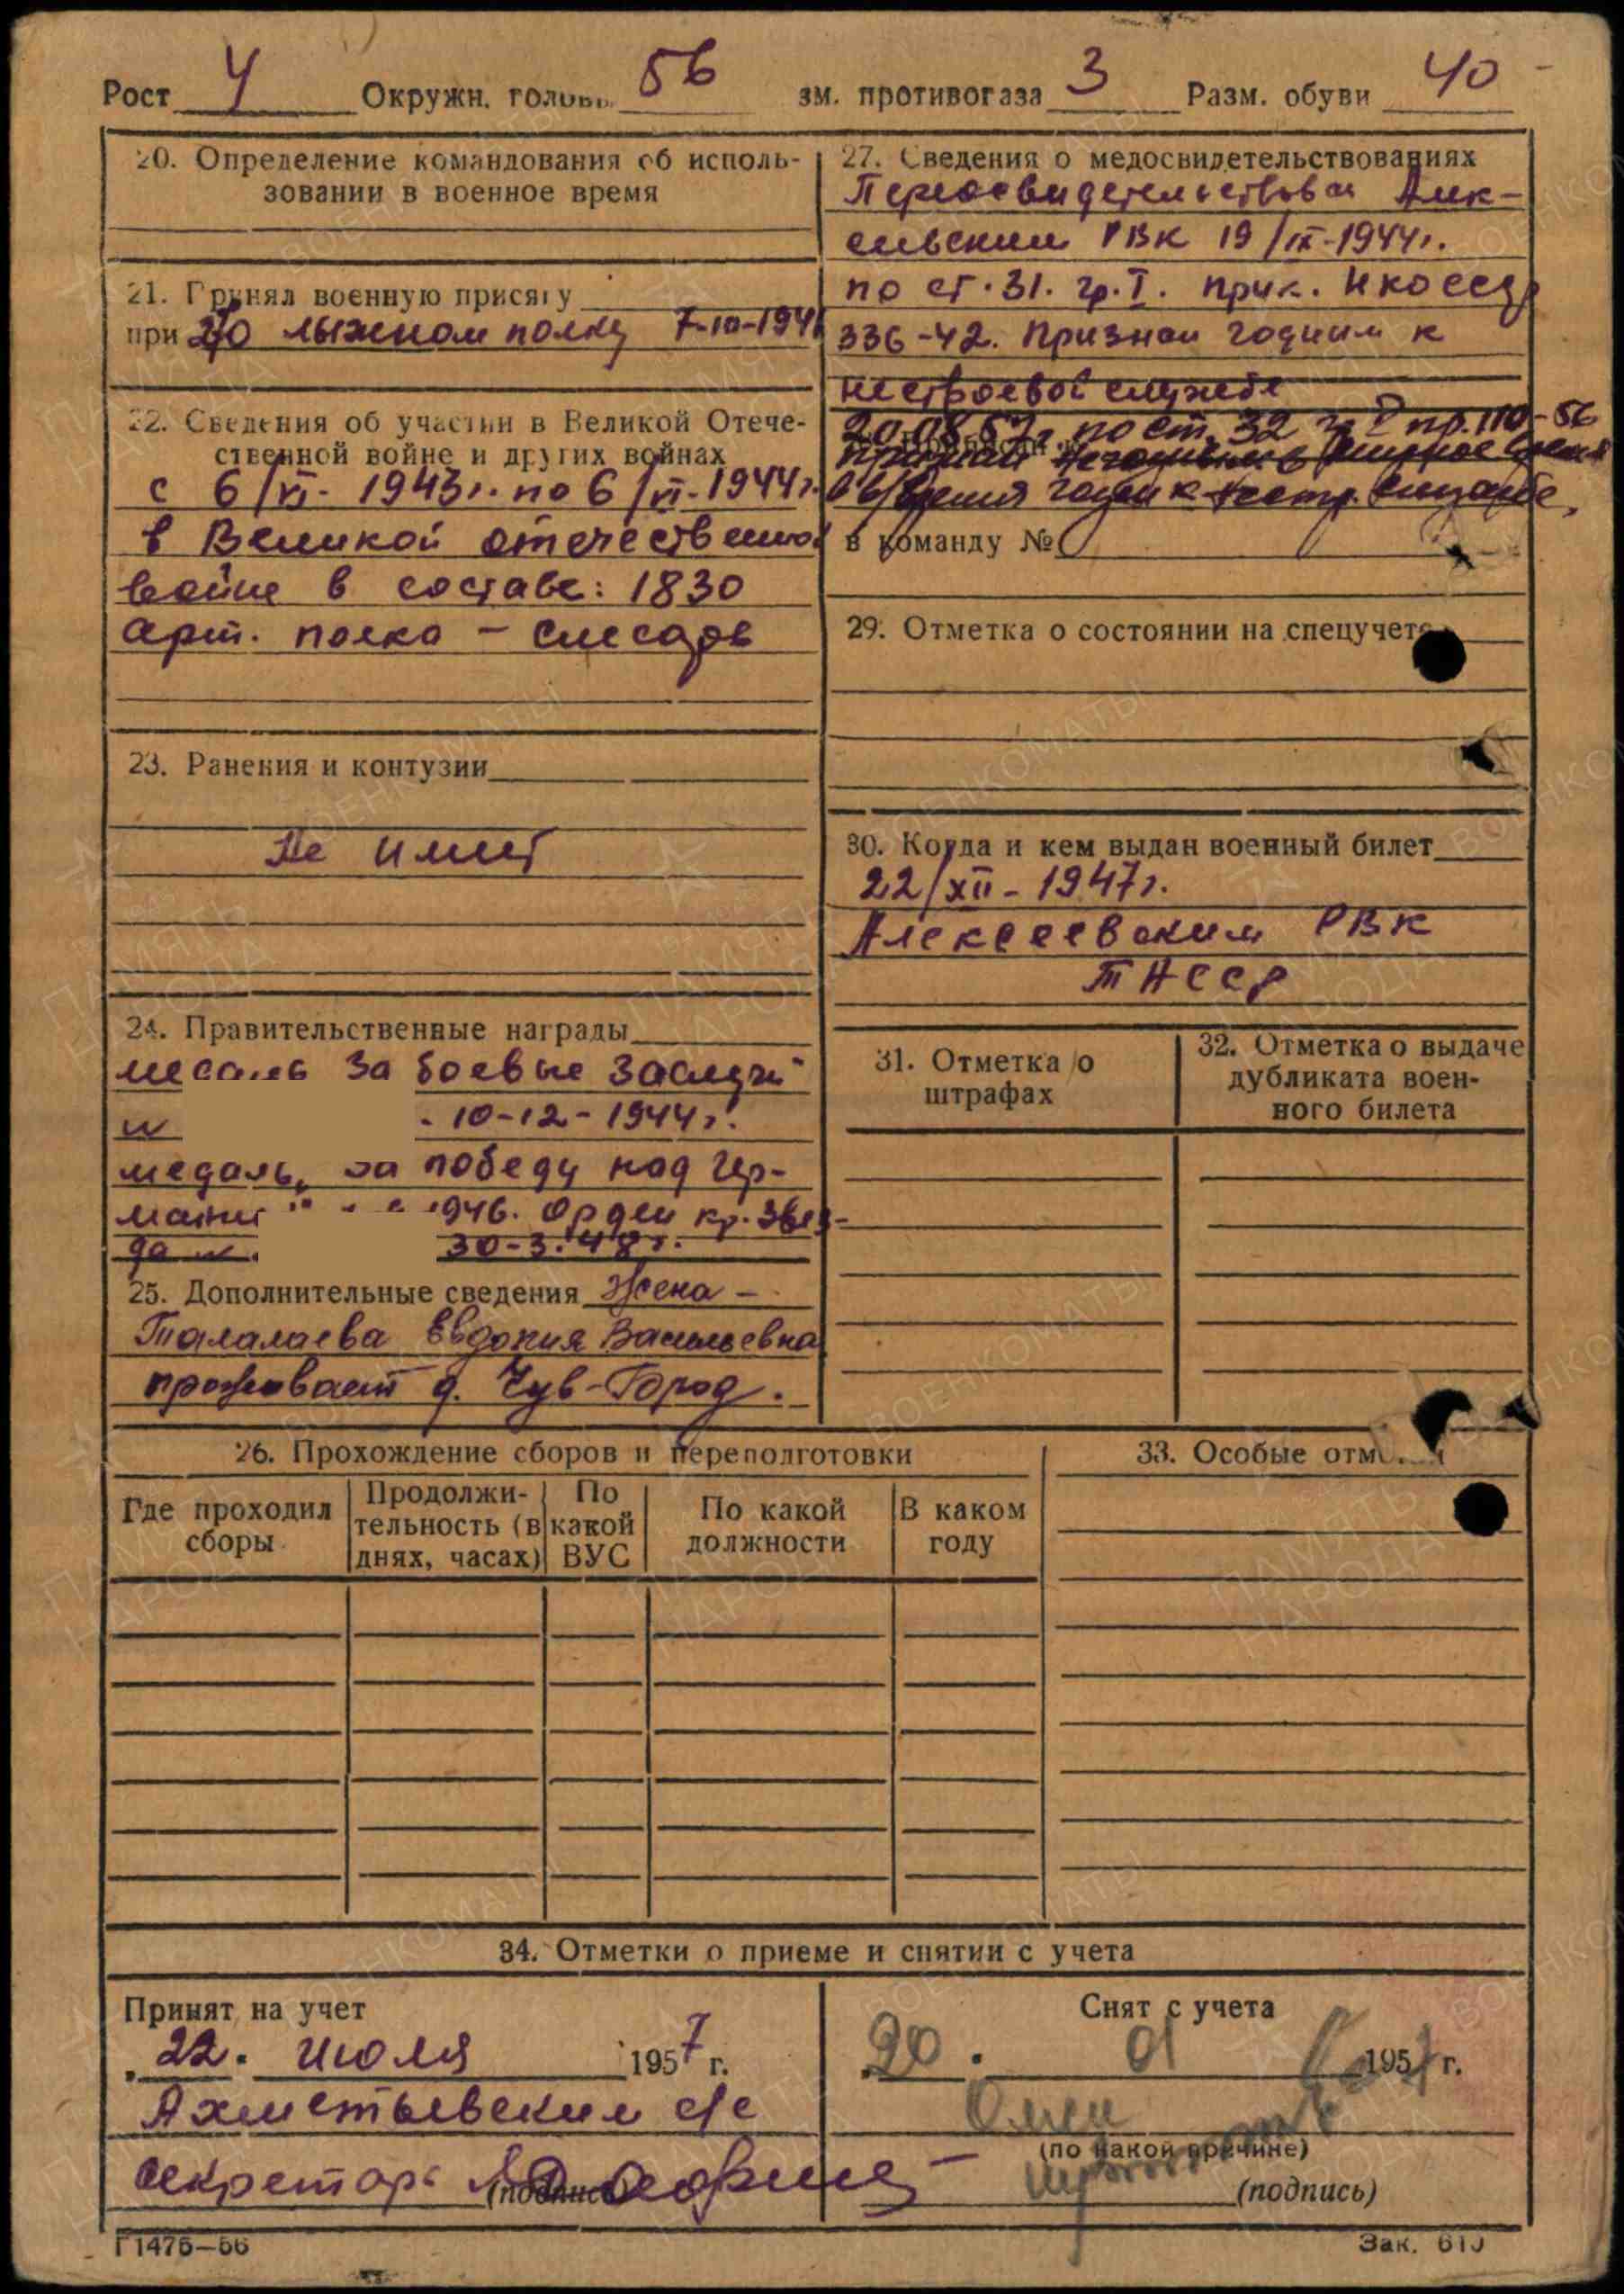 Рост 4 Окружн. головы 56 зм. противогаза 3 Разм. обуви 40
20. Определение командования об исполь-
зовании в военное время
21. Принял военную присягу
при 270 лыжном полку 7-10-1941
22. Сведения об участии в Великой Отече-
ственной войне и других войнах
с 6/VI- 1943г. по 6/VI-1944г.
в Великой отечественной
войне в составе: 1830
арт. полка – слесарь
23. Ранения и контузии
Не имеет
24. Правительственные награды
медаль За боевые заслуги"
10-12-1944г.
медаль, За победу над Гер-
манией 1946. Орден Кр. Звез-
да 30-3.48г.
25. Дополнительные сведения Жена –
Талалаева Евдокия Васильевна
проживает д. Чув-Город.
27. Сведения о медосвидетельствованиях
Переосвидетельствован Алек-
сеевским РВК 19/IX-1944г.
по ст. 31. гр. I. прик. НКО СССР
336-42. Признан годным к
нестроевой службе
20.08.57г по ст. 32 гр. I пр. 110-56
признан негодным в мирное время
в в/время годен к нестр. службе,
в команду №
29. Отметка о состоянии на спецучете
30. Когда и кем выдан военный билет
22/XII- 1947г.
Алексеевским РВК
ТАССР
31. Отметка о
штрафах
32. Отметка о выдаче
дубликата воен-
ного билета
26. Прохождение сборов и переподготовки
Где проходил
сборы
Продолжи-
тельность (в
днях, часах)
По
какой
ВУС
По какой
должности
В каком
году
33. Особые отм
34. Отметки о приеме и снятии с учета
Принят на учет
22. июля 1957 г.
Ахметьевским с/с
секретарь
(подпись)
Снят с учета
20. 01 195 г.
(по какой причине)
(подпись)
Г1475—56
Зак. 61